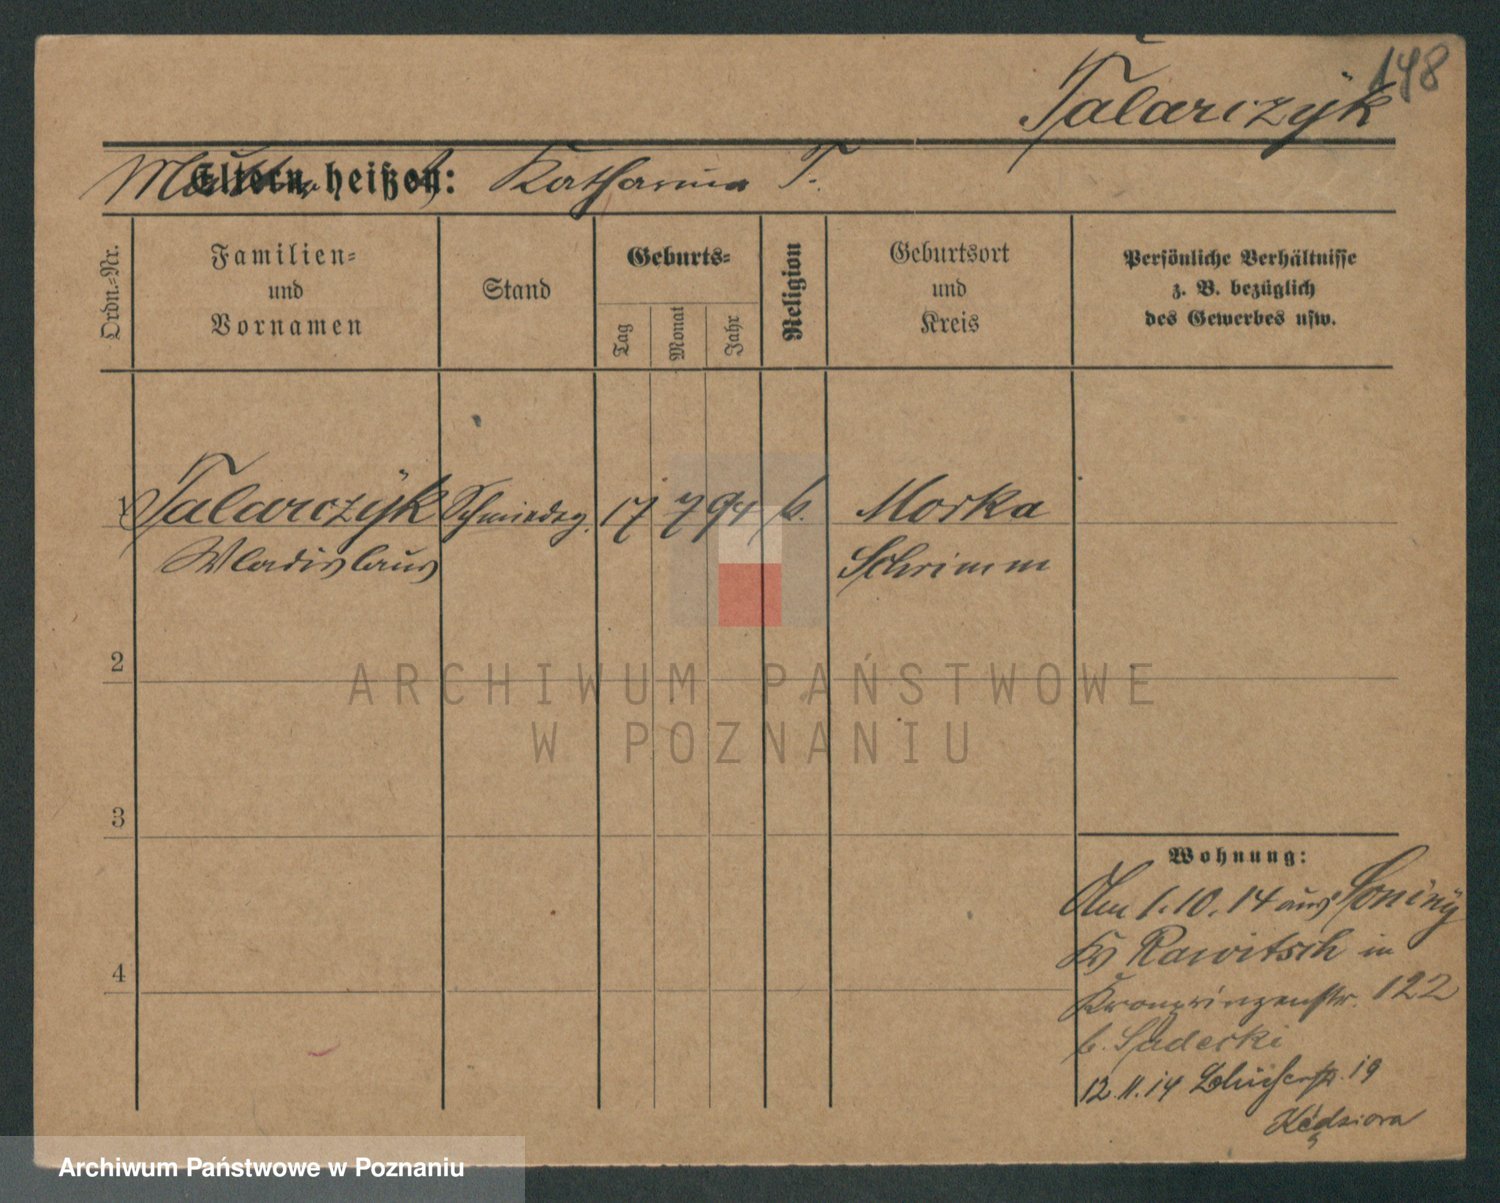 148
Talarczÿk
Eltern heißen: Katharina T.
Ordn.-Nr.
Familien-
und
Vornamen
Stand
Geburts-
Tag
Monat
Jahr
Religion
Geburtsort
und
Kreis
Persönliche Verhältnisse
z. B. bezüglich
des Gewerbes usw.
1 Talarczÿk Schmiedeg. 17 7 94 k. Morka
Wladislaus Schrimm
2
ARCHIWUM PAŃSTWOWE
W POZNANIU
3
4
Wohnung:
Am 1.10.14 aus
Rawitsch in
Kronprinzenstr. 122
b. Sadecki
12.11.14 Blücherstr. 19
Kędziora
Archiwum Państwowe w Poznaniu